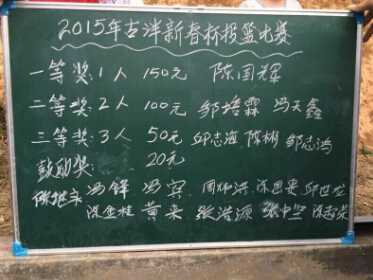 2015年古洋新春杯投篮比赛
一等奖:1人 150元 陈国辉
二等奖:2人 100元 邹培霖 冯天鑫
三等奖:3人 50元 邱志海 陈彬 邹志鸿
鼓励奖: 20元
冯锋 冯宾 周炳洪 邱世龙
黄来 张浩源 张中坚